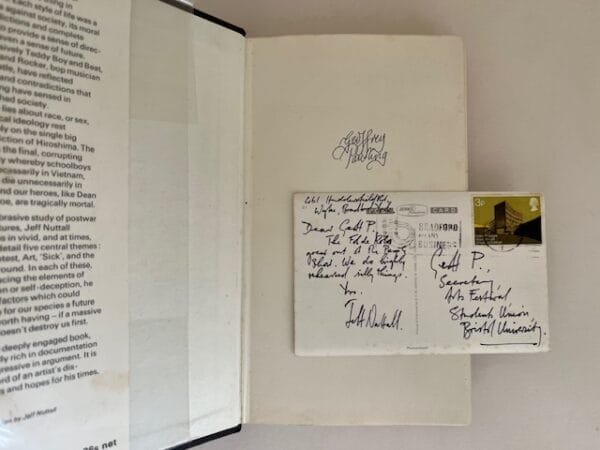 using in
Each style of life was a
against society, its moral
ictions and complete
o provide a sense of direc-
even a sense of future.
sively Teddy Boy and Beat,
and Rocker, bop musician
tle, have reflected
and contradictions that
ng have sensed in
shed society.
lies about race, or sex,
cal ideology rest
ly on the single big
iction of Hiroshima. The
the final, corrupting
y whereby schoolboys
ecessarily in Vietnam,
die unnecessarily in
nd our heroes, like Dean
oe, are tragically mortal.
brasive study of postwar
tures, Jeff Nuttall
es in vivid, and at times,
etail five central themes :
otest, Art, 'Sick', and the
round. In each of these,
acing the elements of
on or self-deception, he
factors which could
y for our species a future
orth having – if a massive
doesn't destroy us first.
deeply engaged book,
ly rich in documentation
gressive in argument. It is
rd of an artist's dis-
s and hopes for his times.
by Jeff Nuttall
6s net
Geoffrey
CARD
BRADFORD
MEANS
BUSINESS
3p
Dear Geoff P.
The
great out of the
Show. We do highly
rehearsed silly things.
Jeff Nuttall.
Geoff P.,
Secretary,
Arts Festival
Students Union
Bristol University.